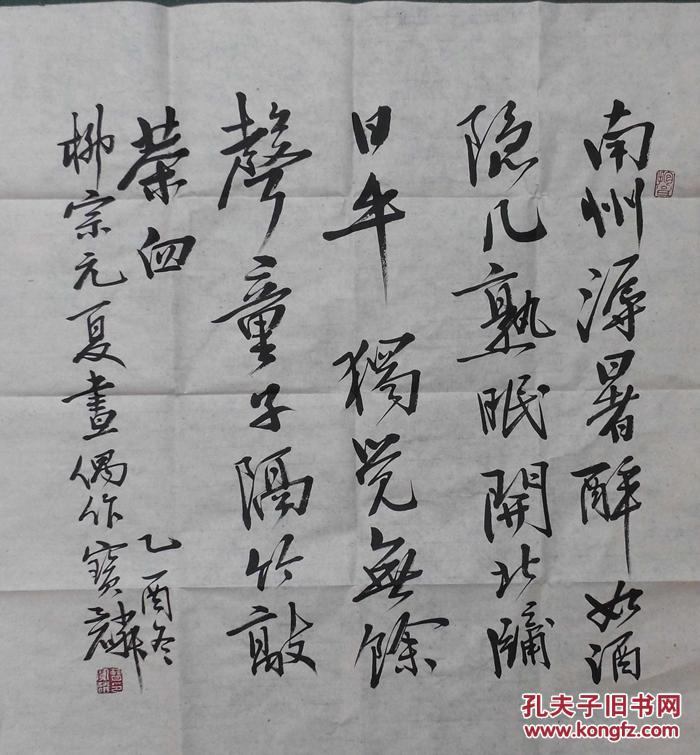 南州溽暑醉如酒
隐几熟眠開北牖
日午獨觉無餘
聲童子隔竹敲
茶臼
柳宗元夏晝偶作寶麟
乙酉冬
孔夫子旧书网